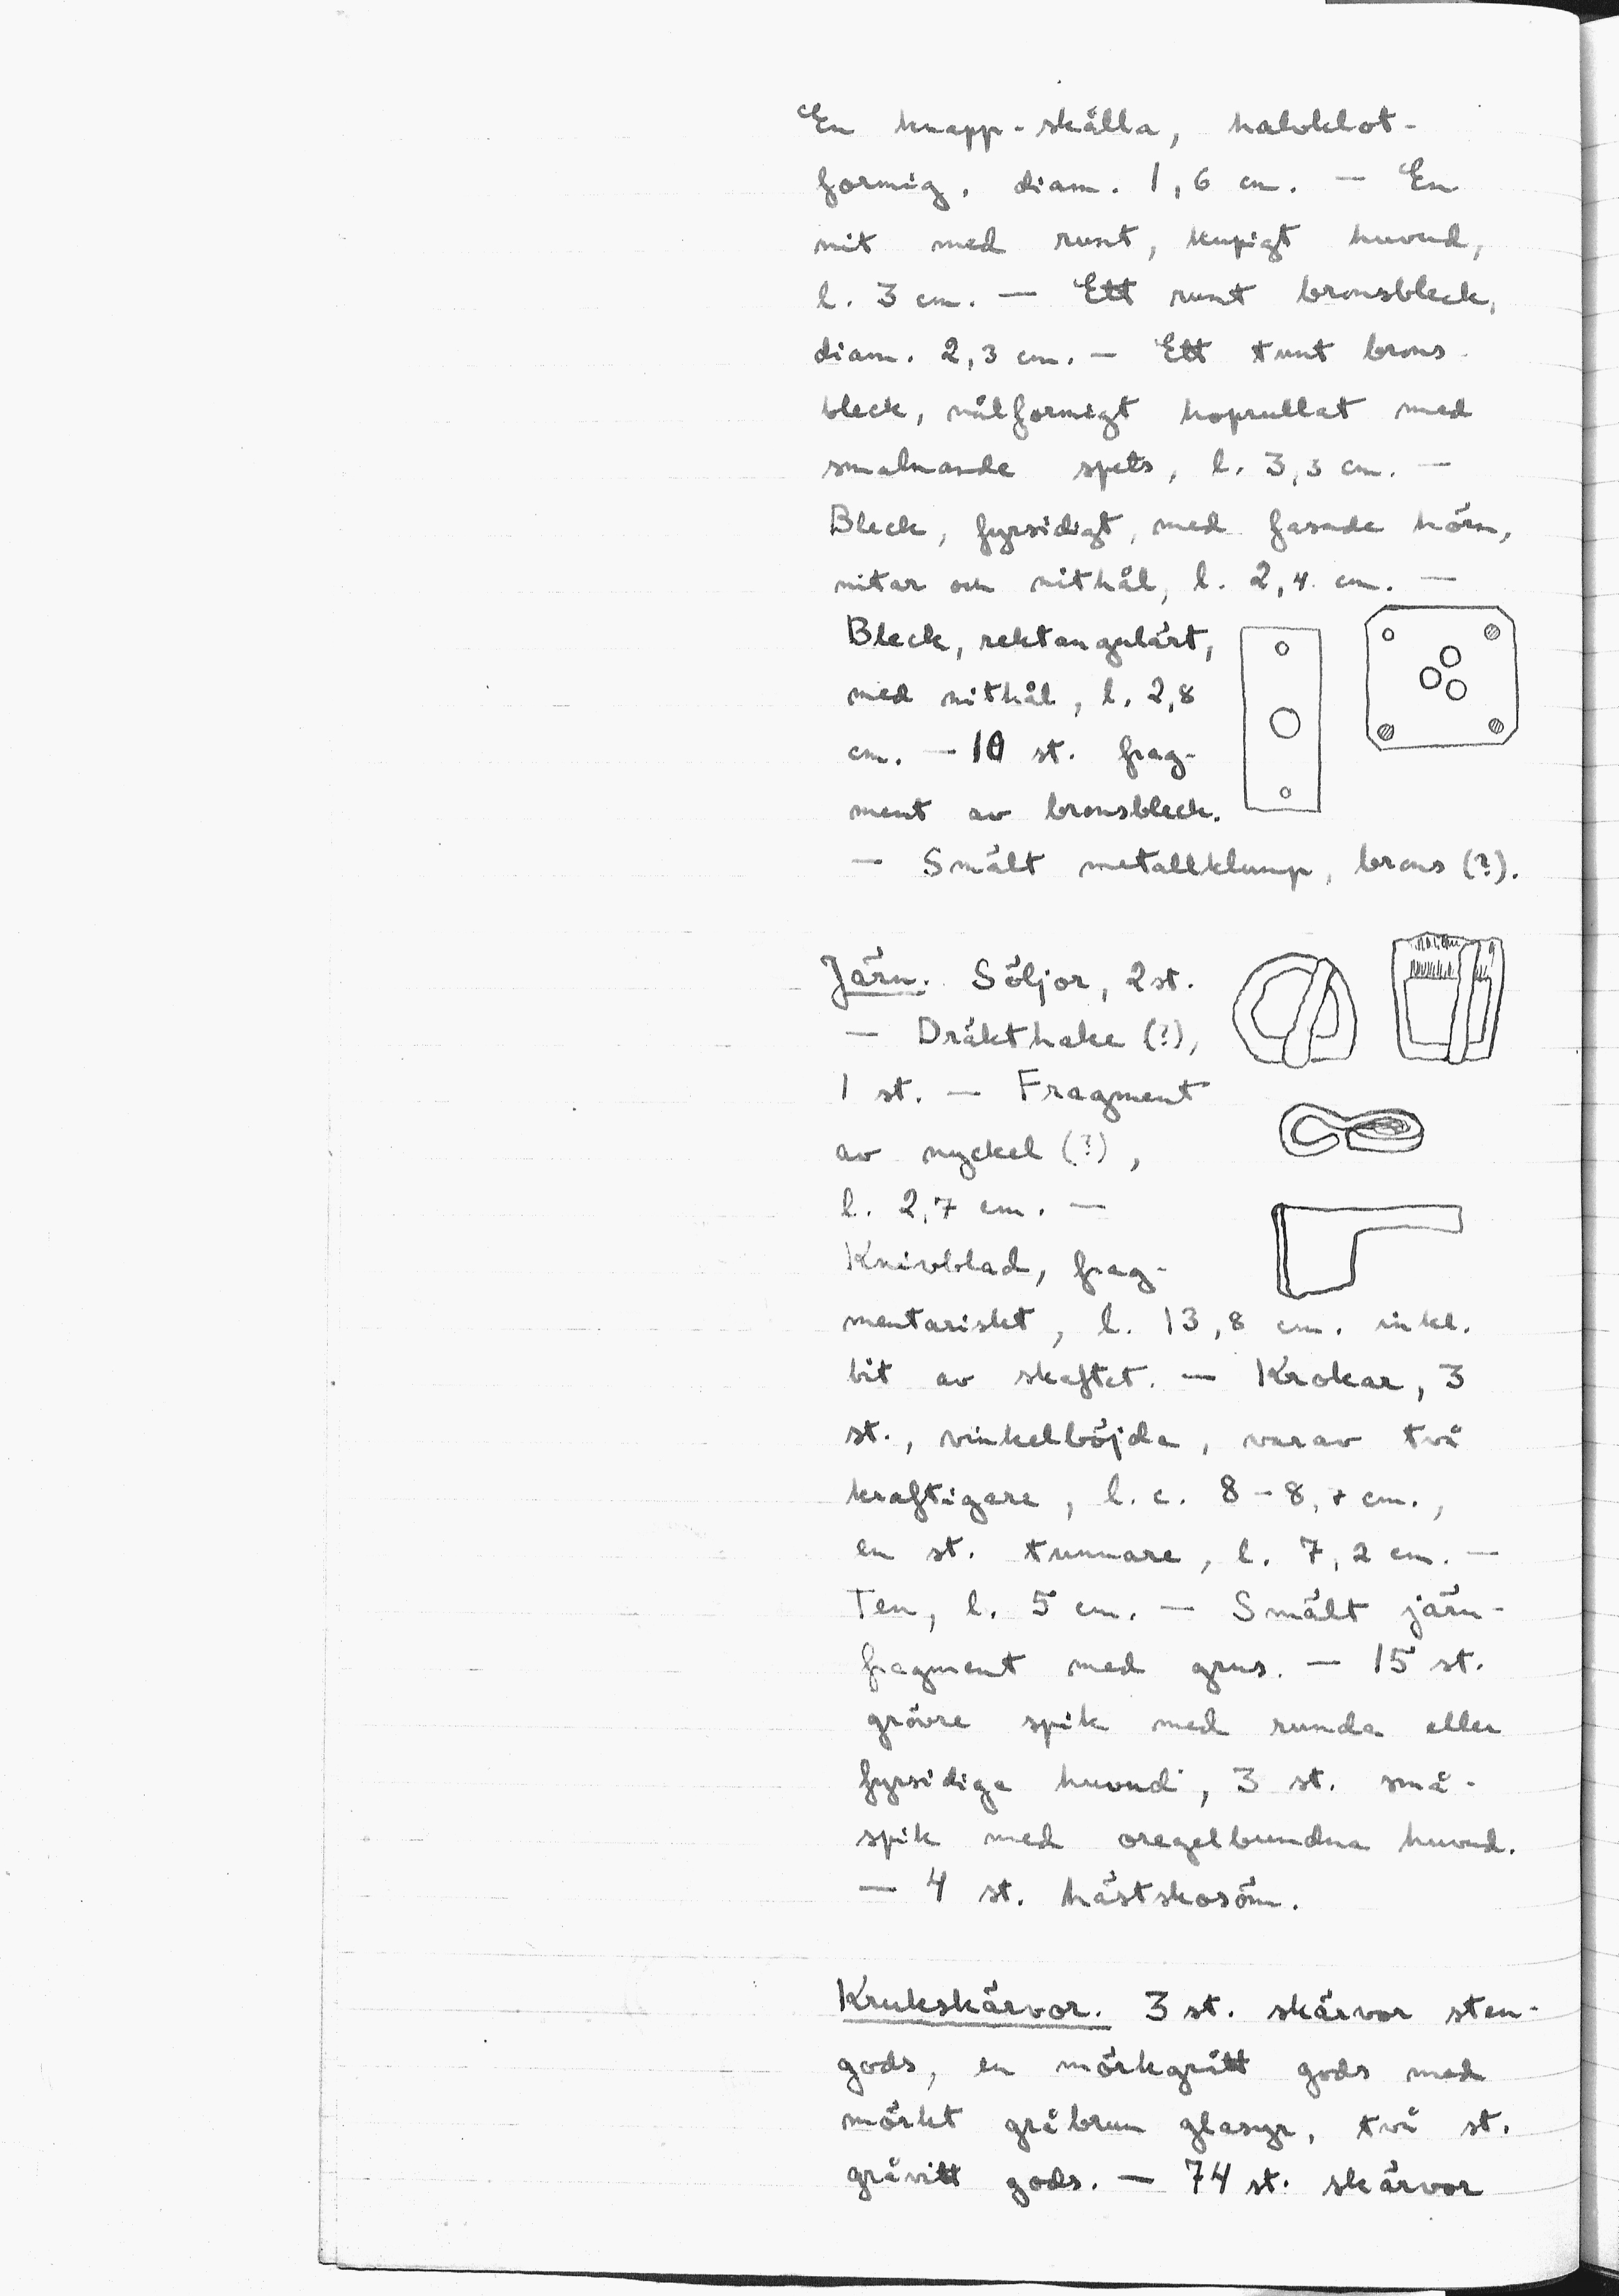 En knapp-skålla, halvklot-
formig, diam. 1,6 cm. — En
nit med runt, kupigt huvud,
l. 3 cm. — Ett runt bronsbleck,
diam. 2,3 cm. — Ett tunt brons-
bleck, nålformigt hoprullat med
smalnande spets, l. 3,3 cm. —
Bleck, fyrsidigt, med fasade hörn,
nitar och nithål, l. 2,4 cm. —
Bleck, rektangulärt,
med nithål, l. 2,8
cm. — 10 st. frag-
ment av bronsbleck.
— Smält metallklump, brons (?).
Järn. Söljor, 2 st.
— Dräkthake (?),
1 st. — Fragment
av nyckel (?),
l. 2,7 cm. —
Knivblad, frag-
mentariskt, l. 13,8 cm. inkl.
bit av skaftet. — Krokar, 3
st., vinkelböjda, varav två
kraftigare, l. c. 8-8, cm.,
en st. tunnare, l. 7,2 cm. —
Ten, l. 5 cm. — Smält järn-
fragment med grus. — 15 st.
grövre spik med runda eller
fyrsidiga huvud, 3 st. små-
spik med oregelbundna huvud.
— 4 st. hästskosöm.
Krukskärvor. 3 st. skärvor sten-
gods, en mörkgrått gods med
mörkt gråbrun glasyr, två st.
gråvitt gods. — 74 st. skärvor